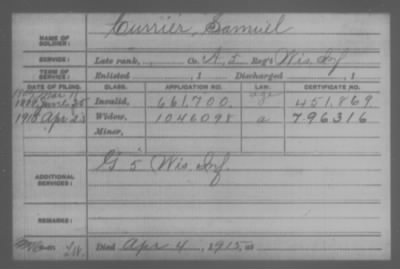 NAME OF SOLDIER: Currier, Samuel
SERVICE: Late rank, Co. A, 5 Reg't Wis. Inf
TERM OF SERVICE: Enlisted , 1 Discharged , 1
DATE OF FILING. CLASS. APPLICATION NO. LAW. CERTIFICATE NO.
Invalid, 661,700. age 451,869
1915 Apr 23 Widow, 1046098 a 796316
Minor,
ADDITIONAL SERVICES: G 5 Wis. Inf.
REMARKS:
Died Apr 4, 1915, at